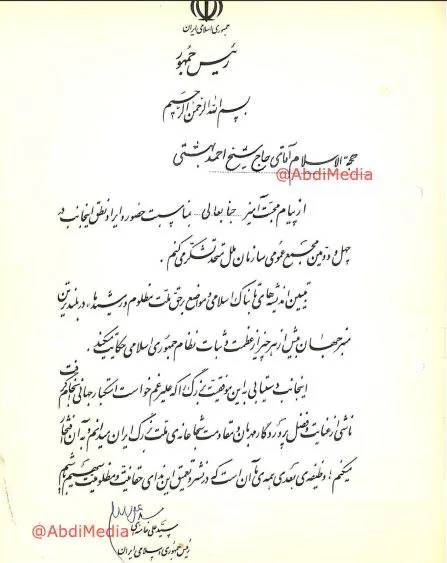 جمهوری اسلامی ایران
رئیس جمهور
بسم الله الرحمن الرحیم
حجة الاسلام آقای حاج شیخ احمد بهشتی
@AbdiMedia
از پیام محبت آمیز جنابعالی بمناسبت حضور و ایراد نطق اینجانب در
چهل و دومین مجمع عمومی سازمان ملل متحد تشکر می کنم .
تبیین اندیشه های تابناک اسلامی و مواضع برحق ملت مظلوم و رشیدمان در بلندترین
منبر جهان بیش از هر چیز از عظمت و ثبات نظام جمهوری اسلامی حکایت میکند .
اینجانب دستیابی به این موفقیت بزرگ را که علیرغم خواست استکبار جهانی انجام گرفت
ناشی از عنایت و فضل پروردگار مهربان و مقاومت شجاعانه ی ملت بزرگ ایران میدانم و به آن افتخار
میکنم ، وظیفه ی بعدی همه ی ما آن است که در نشر و تعمیق این ندای حقانیت و مظلومیت سهیم باشیم
@AbdiMedia
سید علی خامنه ای
رئیس جمهوری اسلامی ایران